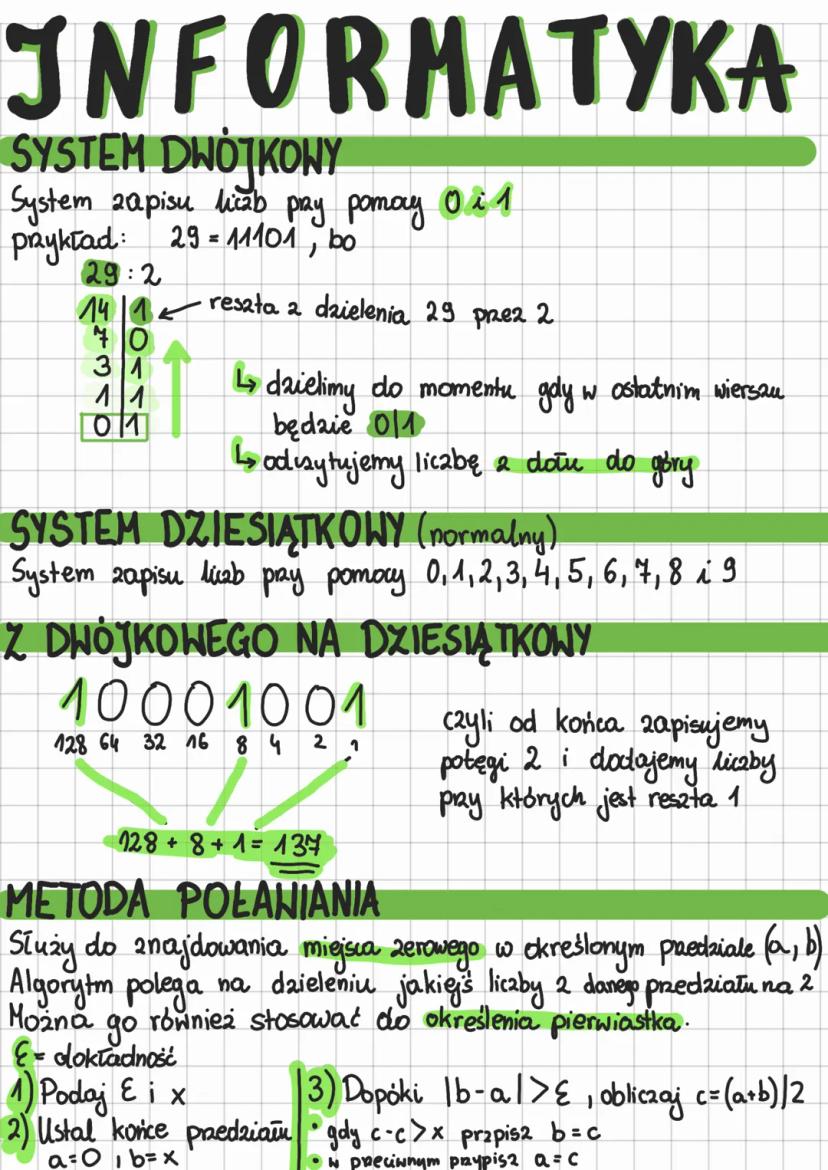 INFORMATYKA
SYSTEM DWÓJKOWY
System zapisu liczb przy pomocy 0 i 1
przykład: 29 = 11101 , bo
29 : 2
14 | 1 ← reszta z dzielenia 29 przez 2
7 | 0
3 | 1
1 | 1
0 | 1
↳ dzielimy do momentu gdy w ostatnim wierszu
będzie 0|1
↳ odczytujemy liczbę z dołu do góry
SYSTEM DZIESIĄTKOWY (normalny)
System zapisu liczb przy pomocy 0,1,2,3,4,5,6,7,8 i 9
Z DWÓJKOWEGO NA DZIESIĄTKOWY
1 0 0 0 1 0 0 1
128 64 32 16 8 4 2 1
128 + 8 + 1 = 137
czyli od końca zapisujemy
potęgi 2 i dodajemy liczby
przy których jest reszta 1
METODA POŁAWIANIA
Służy do znajdowania miejsca zerowego w określonym przedziale (a, b)
Algorytm polega na dzieleniu jakiejś liczby z danego przedziału na 2
Można go również stosować do określenia pierwiastka.
Ɛ = dokładność
1) Podaj Ɛ i x
2) Ustal końce przedziału
a=0 , b=x
3) Dopóki |b-a|>Ɛ , obliczaj c=(a+b)/2
• gdy c·c>x przpisz b=c
• w przeciwnym przypisz a=c